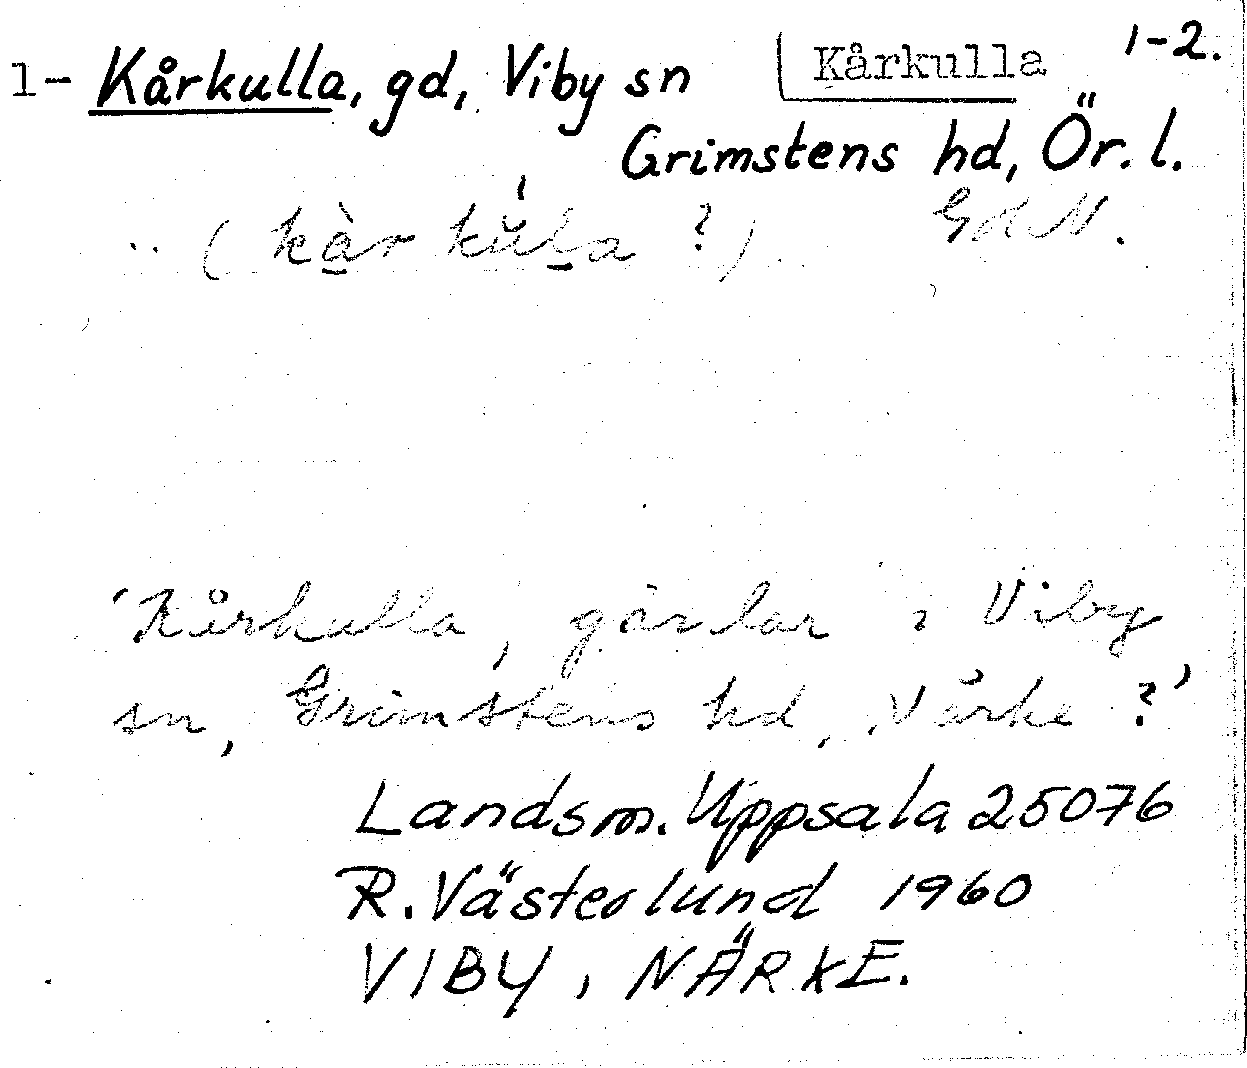 1- Kårkulla, gd, Viby sn Kårkulla 1-2.
Grimstens hd, Ör. l.
.. (kàrkŭla ?) GdN.
'Kårkulla, gårdar i Viby
sn, Grimstens hd, Närke ?'
Landsm. Uppsala 25076
R. Västerlund 1960
VIBY, NÄRKE.